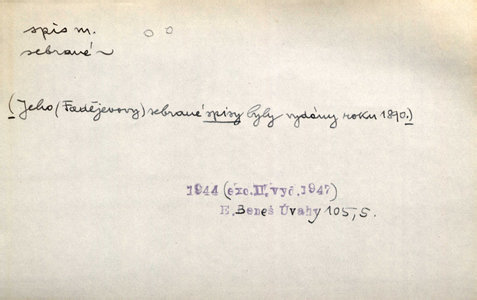 spis m.
sebrané
(Jeho (Faďejevovy) sebrané spisy byly vydány roku 1890.)
1944 (exc.II.vyd.1947)
E. Beneš Úvahy 105,5.